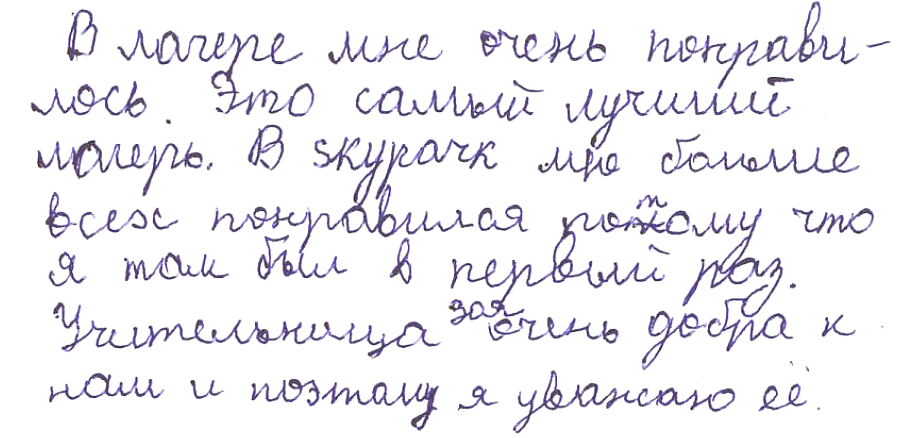 В лагере мне очень понрави-
лось. Это самый лучший
лагерь. В sкурачк мне больше
всех понравился потому что
я там был в первый раз.
Учительница зоя очень добра к
нам и поэтому я уважаю её.